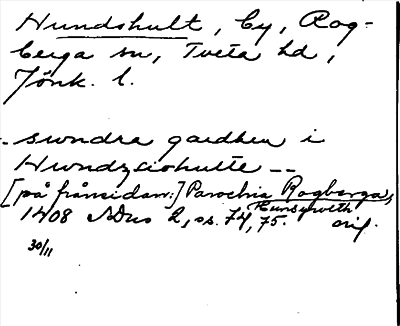 Hundshult, by, Rog-
berga sn, Tveta hd,
Jönk. l.
- sundra gardhen i
Hundzsiohulte --
[på frånsidan:] Parochia Rogberga,
Hunsmeth
1408 SDns 2, ss. 74, 75. orig.
30/11